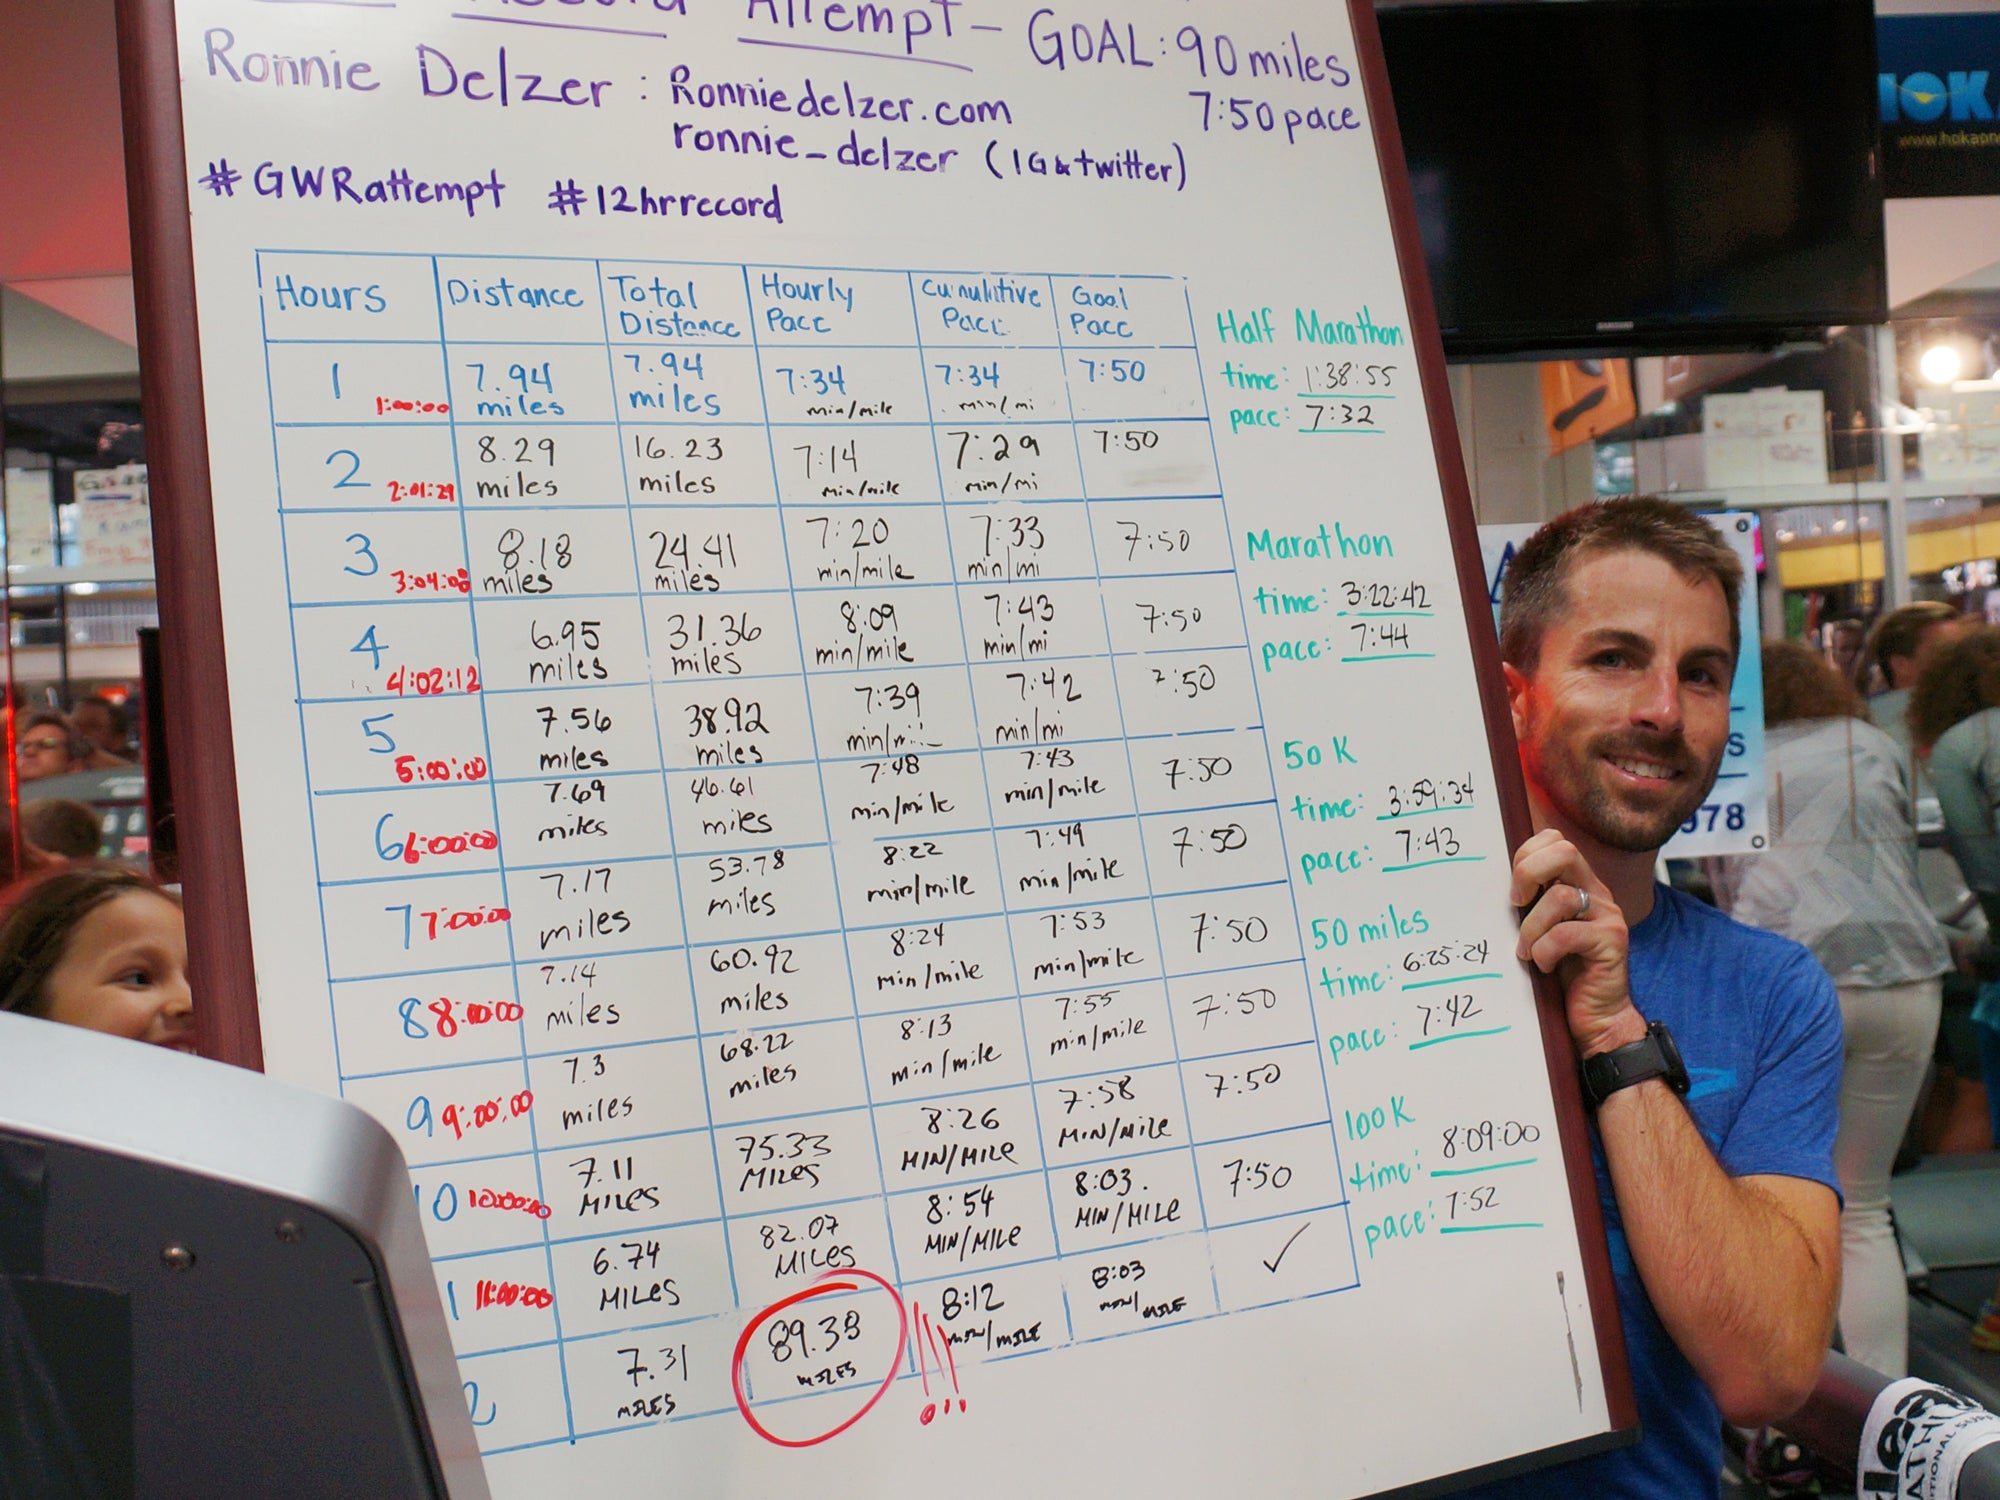 Record Attempt – GOAL: 90 miles
Ronnie Delzer : Ronniedelzer.com 7:50 pace
ronnie_delzer (IG & twitter)
#GWRattempt #12hrrecord
Hours Distance Total Distance Hourly Pace Cumulitive Pace Goal Pace
1 1:00:00 7.94 miles 7.94 miles 7:34 min/mile 7:34 min/mi 7:50
2 2:01:29 8.29 miles 16.23 miles 7:14 min/mile 7:29 min/mi 7:50
3 3:04:08 8.18 miles 24.41 miles 7:20 min/mile 7:33 min/mi 7:50
4 4:02:12 6.95 miles 31.36 miles 8:09 min/mile 7:43 min/mi 7:50
5 5:00:00 7.56 miles 38.92 miles 7:39 min/mile 7:42 min/mi 7:50
6 6:00:00 7.69 miles 46.61 miles 7:48 min/mile 7:43 min/mile 7:50
7 7:00:00 7.17 miles 53.78 miles 8:22 min/mile 7:49 min/mile 7:50
8 8:00:00 7.14 miles 60.92 miles 8:24 min/mile 7:53 min/mile 7:50
9 9:00:00 7.3 miles 68.22 miles 8:13 min/mile 7:55 min/mile 7:50
0 10:00:00 7.11 MILES 75.33 MILES 8:26 MIN/MILE 7:58 MIN/MILE 7:50
1 11:00:00 6.74 MILES 82.07 MILES 8:54 MIN/MILE 8:03. MIN/MILE 7:50
2 7.31 MILES 89.38 MILES !!! 8:12 MIN/MILE 8:03 MIN/MILE ✓
Half Marathon
time: 1:38:55
pace: 7:32
Marathon
time: 3:22:42
pace: 7:44
50 K
time: 3:59:34
pace: 7:43
50 miles
time: 6:25:24
pace: 7:42
100 K
time: 8:09:00
pace: 7:52
HOKA
S
978